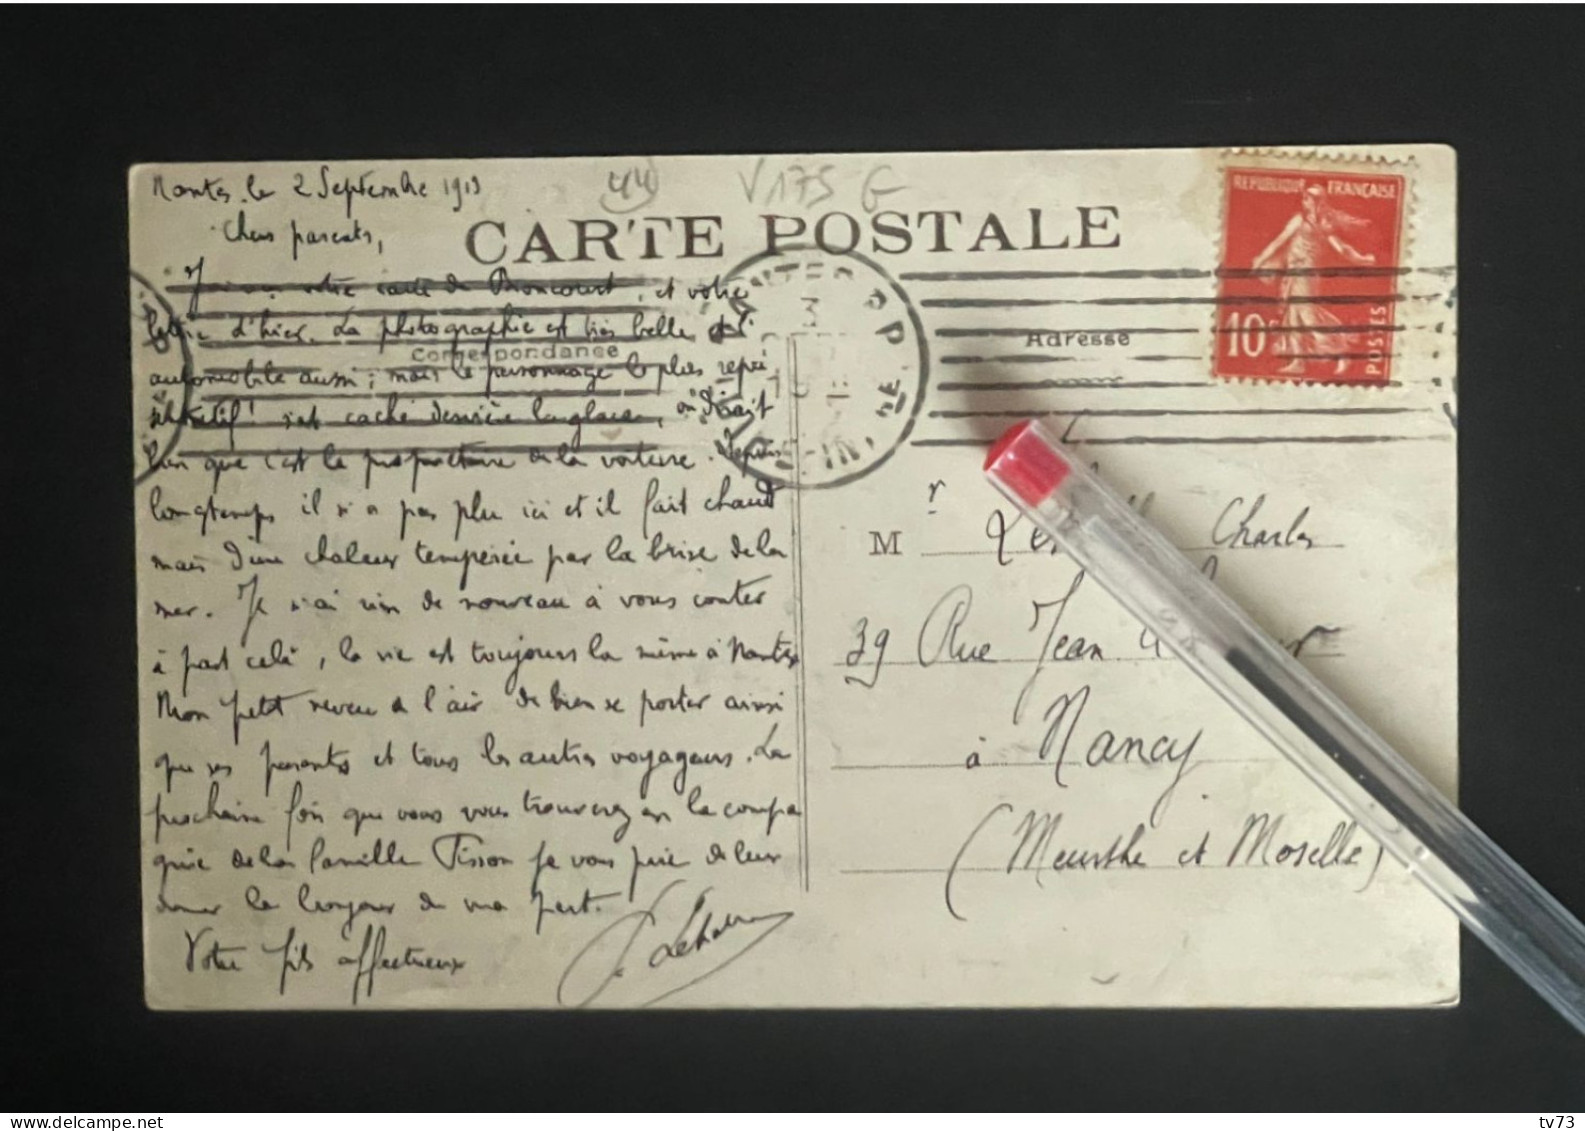 Nantes, le 2 Septembre 1913
(44) V175 G
CARTE POSTALE
Chers parents,
votre carte de Broncourt, et votre
lettre d'hier. La photographie est très belle et l'
Correspondance
automobile aussi ; mais le personnage le plus repré
sentatif ! est caché derrière la glace, on dirait
bien que c'est le propriétaire de la voiture. Depuis
longtemps il n'a pas plu ici et il fait chaud
mais d'une chaleur tempérée par la brise de la
mer. Je n'ai rien de nouveau à vous conter
à part cela, la vie est toujours la même à Nantes
Mon petit neveu a l'air de bien se porter ainsi
que ses parents et tous les autres voyageurs. La
prochaine fois que vous vous trouverez en la compa
gnie de la famille Tisson je vous prie de leur
donner le bonjour de ma part.
Votre fils affectueux
REPUBLIQUE FRANÇAISE
10c
POSTES
NANTES RP
LOIRE-INF
Adresse
Mr Charles
39 Rue Jean
à Nancy
(Meurthe et Moselle)
tv73